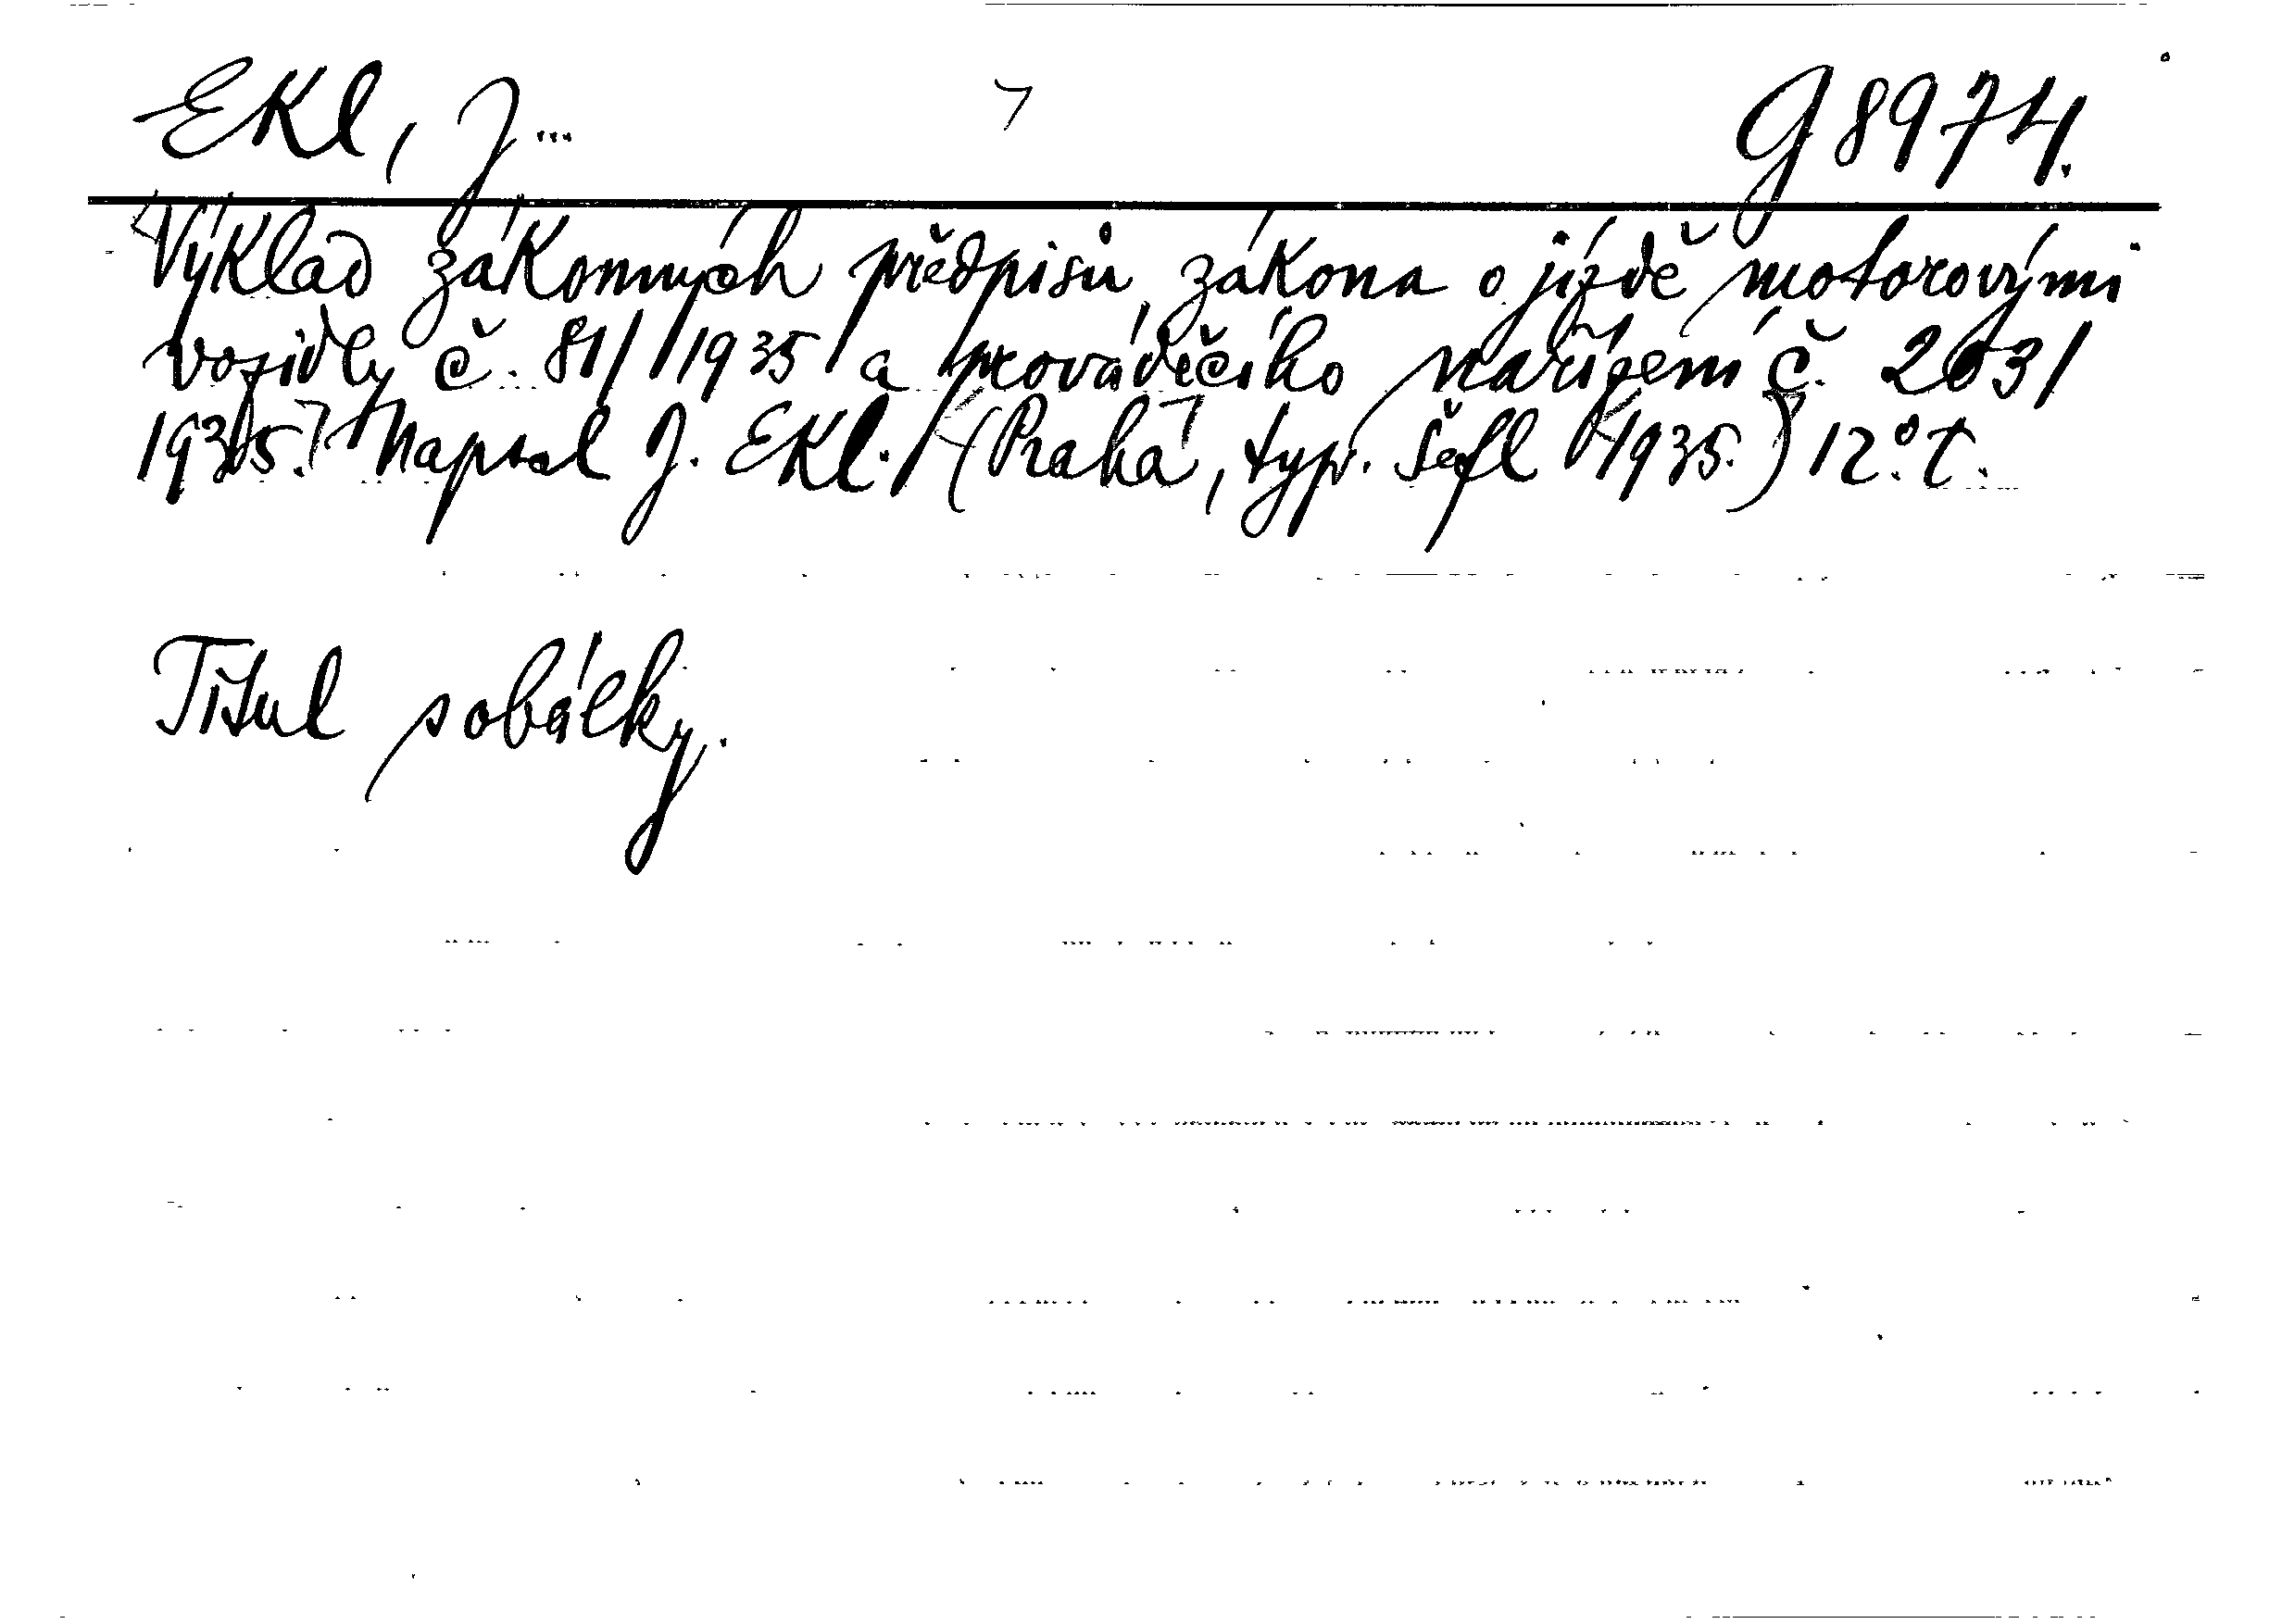 Ekl, J... G 8974.
Výklad zákonných předpisů, zákona o jízdě motorovými
vozidly č. 81/1935 a prováděcího nařízení č. 203/
1935. Napsal J. Ekl. (Praha, typ. Šefl 1935.) 12°. t.
Titul s obálky.